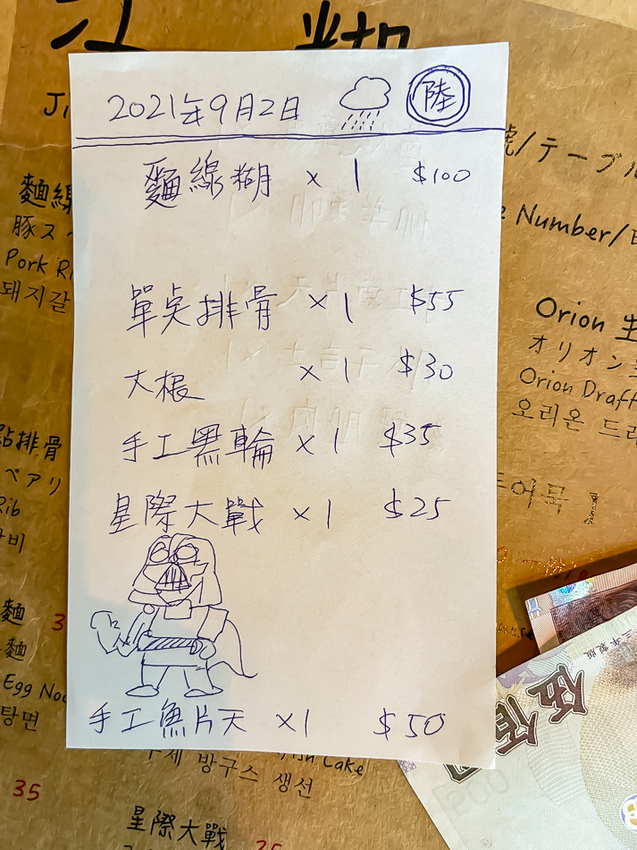 2021年9月2日 陸
麵線糊 x 1 $100
單点排骨 x 1 $55
大根 x 1 $30
手工黑輪 x 1 $35
星際大戰 x 1 $25
手工魚片天 x1 $50
糊
Ji
麵線
豚ス
Pork Ri
돼지갈
號/テーブル
Number/
Orion 生
オリオン
Orion Draft
오리온 드
點排骨
ペアリ
Rib
어묵
麵 3
麵
Egg Noo
탕면
35
Fish Cake
수제 방구스 생선
星際大戰
25
伍佰